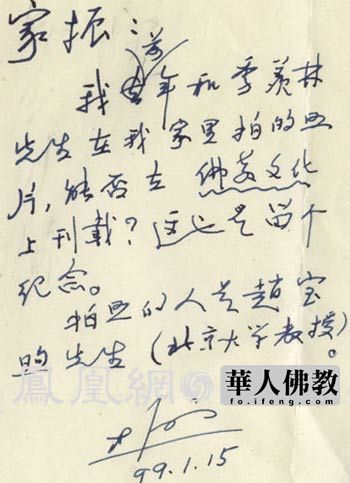 家振:
我前年和季羡林
先生在我家里拍的照
片,能否在 佛教文化
上刊载?这也是留个
纪念。
拍照的人是趙宝
煦先生(北京大学教授)。
99.1.15
鳳凰網
華人佛教
fo.ifeng.com